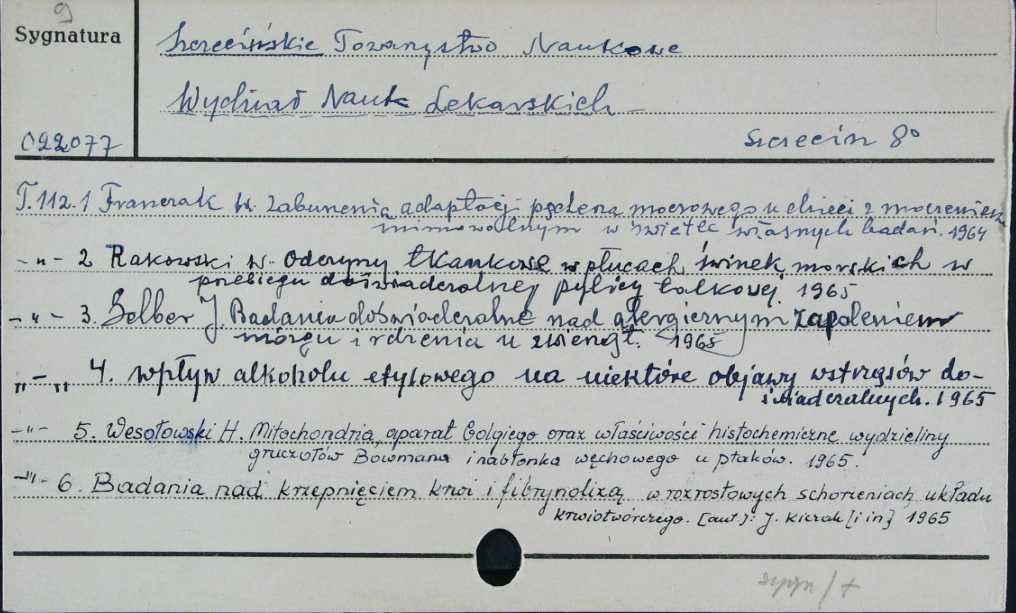 9
Sygnatura
Szczecińskie Towarzystwo Naukowe
Wydział Nauk Lekarskich
022077
Szczecin 8°
T.112.1 Franczak W. Zaburzenia adaptacji pęcherza moczowego u dzieci z moczeniem
mimowolnym w świetle własnych badań. 1964
-"- 2 Rakowski W. Odczyny tkankowe w płucach świnek morskich w
przebiegu doświadczalnej pylicy talkowej. 1965
-"- 3. Selber J. Badania doświadczalne nad alergicznym zapaleniem
mózgu i rdzenia u zwierząt. 1965
„-„ 4. Wpływ alkoholu etylowego na niektóre objawy wstrząsów do-
świadczalnych. 1965
-"- 5. Wesołowski H. Mitochondria, aparat Golgiego oraz właściwości histochemiczne wydzieliny
gruczołów Bowmana i nabłonka węchowego u ptaków. 1965.
-"- 6. Badania nad krzepnięciem krwi i fibrynolizą w rozrostowych schorzeniach układu
krwiotwórczego. [aut]: J. Kierak [i in] 1965